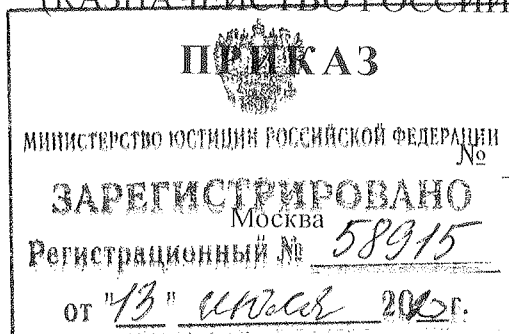 (КАЗНАЧЕЙСТВО РОССИИ)
ПРИКАЗ
МИНИСТЕРСТВО ЮСТИЦИИ РОССИЙСКОЙ ФЕДЕРАЦИИ
№
ЗАРЕГИСТРИРОВАНО
Москва
Регистрационный № 58915
от "13" июля 2020г.